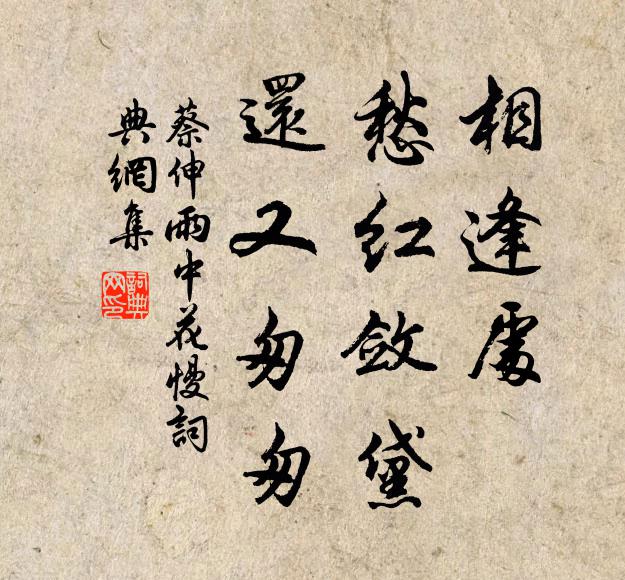 相逢處
愁紅斂黛
還又匆匆
蔡伸雨中花慢詞
典網集
詞典网印